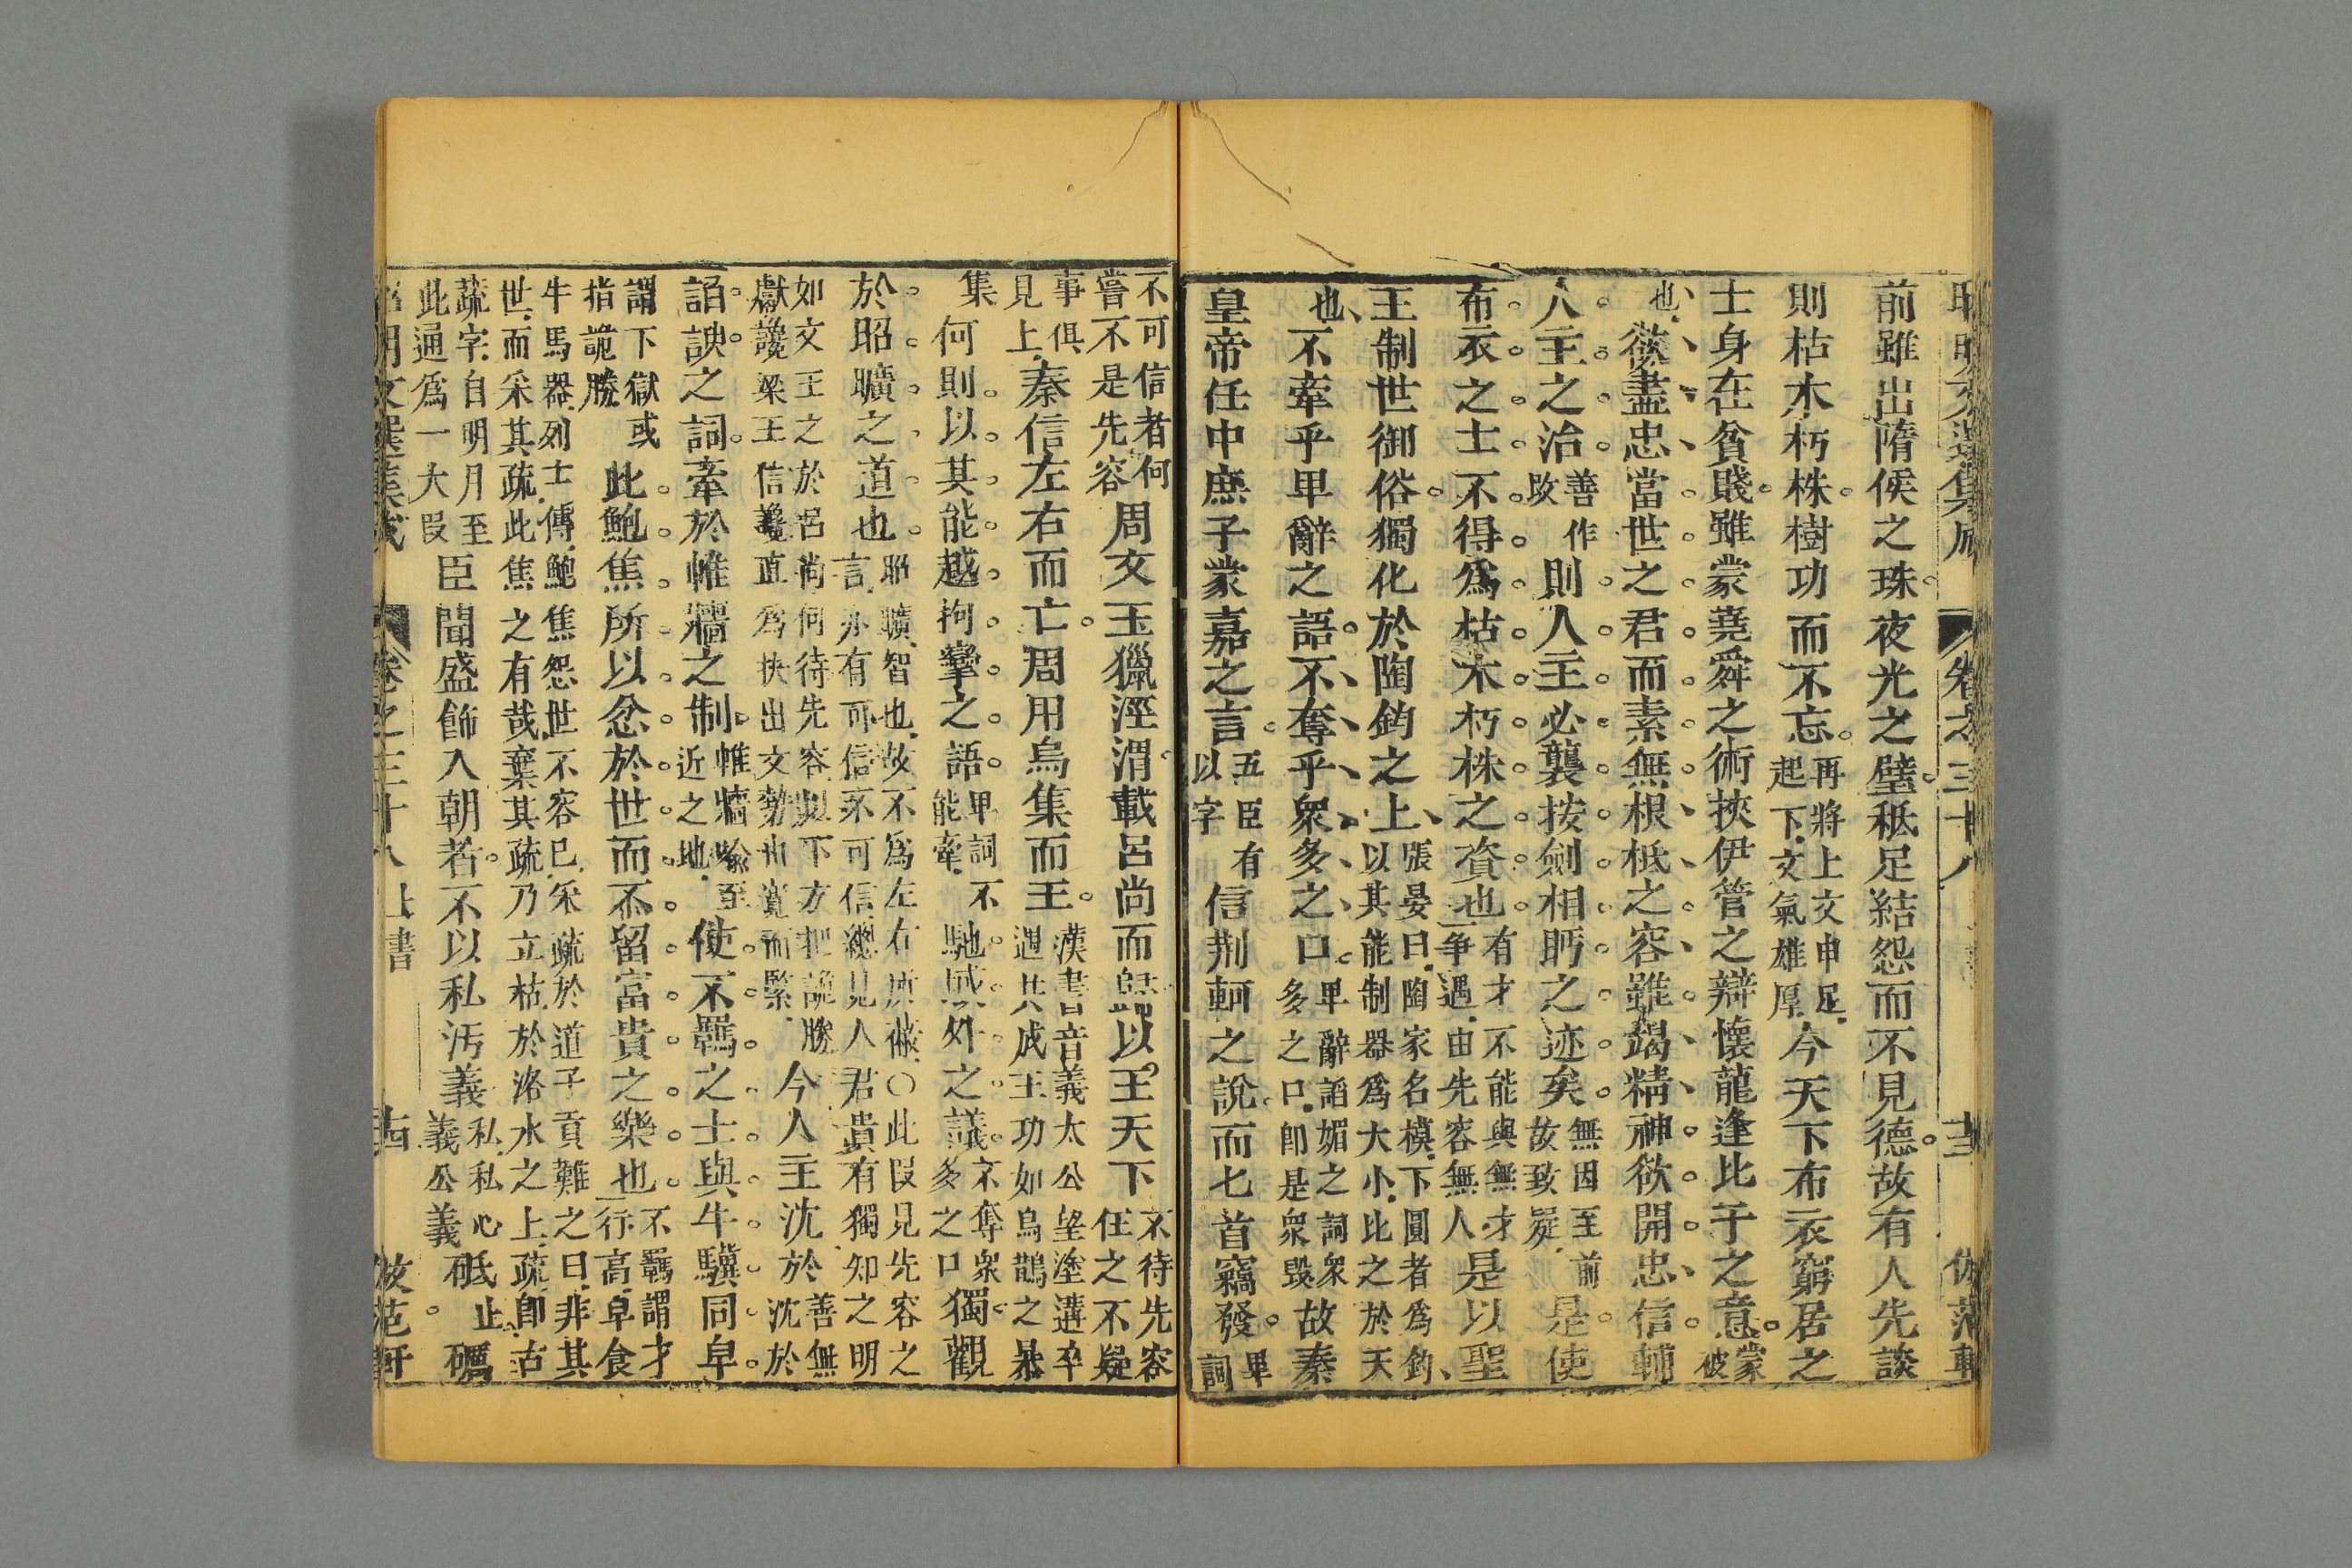 昭明文選集成 卷之三十八 上書 十三 倣范軒
前雖出隋侯之珠夜光之璧秪足結怨而不見德故有人先談
則枯木朽株樹功而不忘再將上文申足起下文氣雄厚今天下布衣窮居之
士身在貧賤雖蒙堯舜之術挾伊管之辯懷龍逢比干之意蒙被
也欲盡忠當世之君而素無根柢之容雖竭精神欲開忠信輔
人主之治善作政則人主必襲按劍相眄之迹矣無因至前故致疑是使
布衣之士不得爲枯木朽株之資也有才不能與無才爭遇由先容無人是以聖
王制世御俗獨化於陶鈞之上張晏曰陶家名模下圓者爲鈞以其能制器爲大小比之於天
也不牽乎卑辭之語不奪乎衆多之口卑辭諂媚之詞衆多之口卽是衆毀故秦
皇帝任中庶子蒙嘉之言五臣有以字信荆軻之說而七首竊發卑詞
不可信者何嘗不是先容周文王獵涇渭載呂尚而歸以王天下不待先容任之不疑
事俱見上秦信左右而亡周用烏集而王漢書音義太公望塗遘卒遇共成王功如烏鵲之暴
集何則以其能越拘攣之語卑詞不能牽馳域外之議不奪衆多之口獨觀
於昭曠之道也昭曠智也故不爲左右所蔽〇此段見先容之言亦有可信不可信總見人君貴有獨知之明
如文王之於呂尚何待先容以下方把詭勝獻讒梁王信讒直爲抉出文勢由寬而緊今人主沈於善無沈於
諂諛之詞牽於帷牆之制帷牆喻至近之地使不羈之士與牛驥同皁
謂下獄或指詭勝此鮑焦所以忿於世而不留富貴之樂也不羈謂才行高皁食
牛馬器列士傳鮑焦怨世不容已采蔬於道子貢難之曰非其世而采其蔬此焦之有哉棄其蔬乃立枯於洛水之上疏卽古
蔬字自明月至此通爲一大段臣聞盛飾入朝者不以私汚義私私心義公義砥止礪
昭明文選集成 卷之三十八 上書 十四 倣范軒